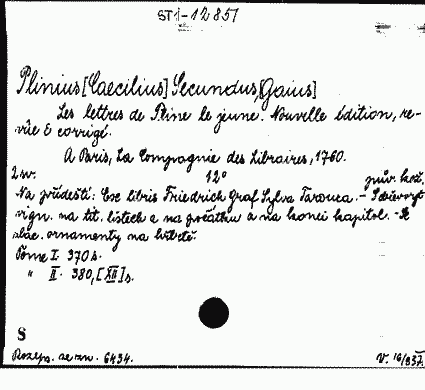 ST1-12851
Plinius [Caecilius] Secundus, [Gaius]
Les lettres de Pline le jeune. Nouvelle édition, re-
vûe & corrigé.
A Paris, La Compagnie des Libraires, 1760.
2 sv. 12° pův. kož.
Na přídeští: Exe libris Friedrich Graf Sylva Tarouca. - Dřevoryt
vign. na tit. listech a na počátku a na konci kapitol. - Zl
zlac. ornamenty na hřbetě.
Tome I. 370 s.
" II. 380, [XII] s.
S
Rozep. se zn. 6434. V. 16/937.